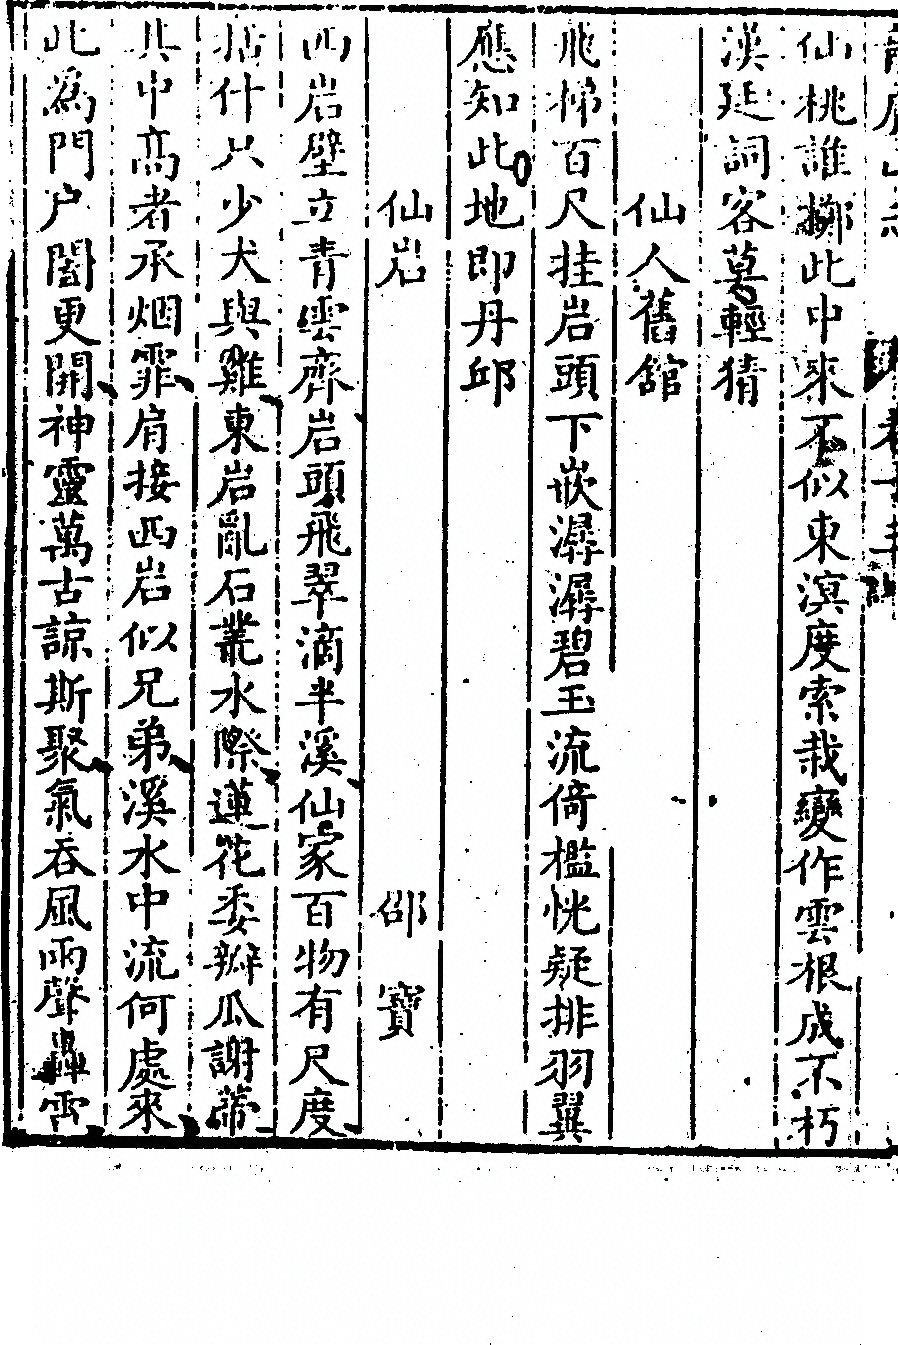 仙桃誰擲此中來不似東溟度索栽變作雲根成不朽
漢廷詞客莫輕猜
仙人舊館
飛梯百尺挂岩頭下嵌潺潺碧玉流倚檻恍疑排羽翼
應知此地即丹邱
仙岩 邵寶
西岩壁立青雲齊岩頭飛翠滴半溪仙家百物有尺度
括什只少犬與雞東岩亂石叢水際蓮花委瓣瓜謝蒂
其中高者承烟霏肩接西岩似兄弟溪水中流何處來
此為門戶闔更開神靈萬古諒斯聚氣吞風雨聲轟雷